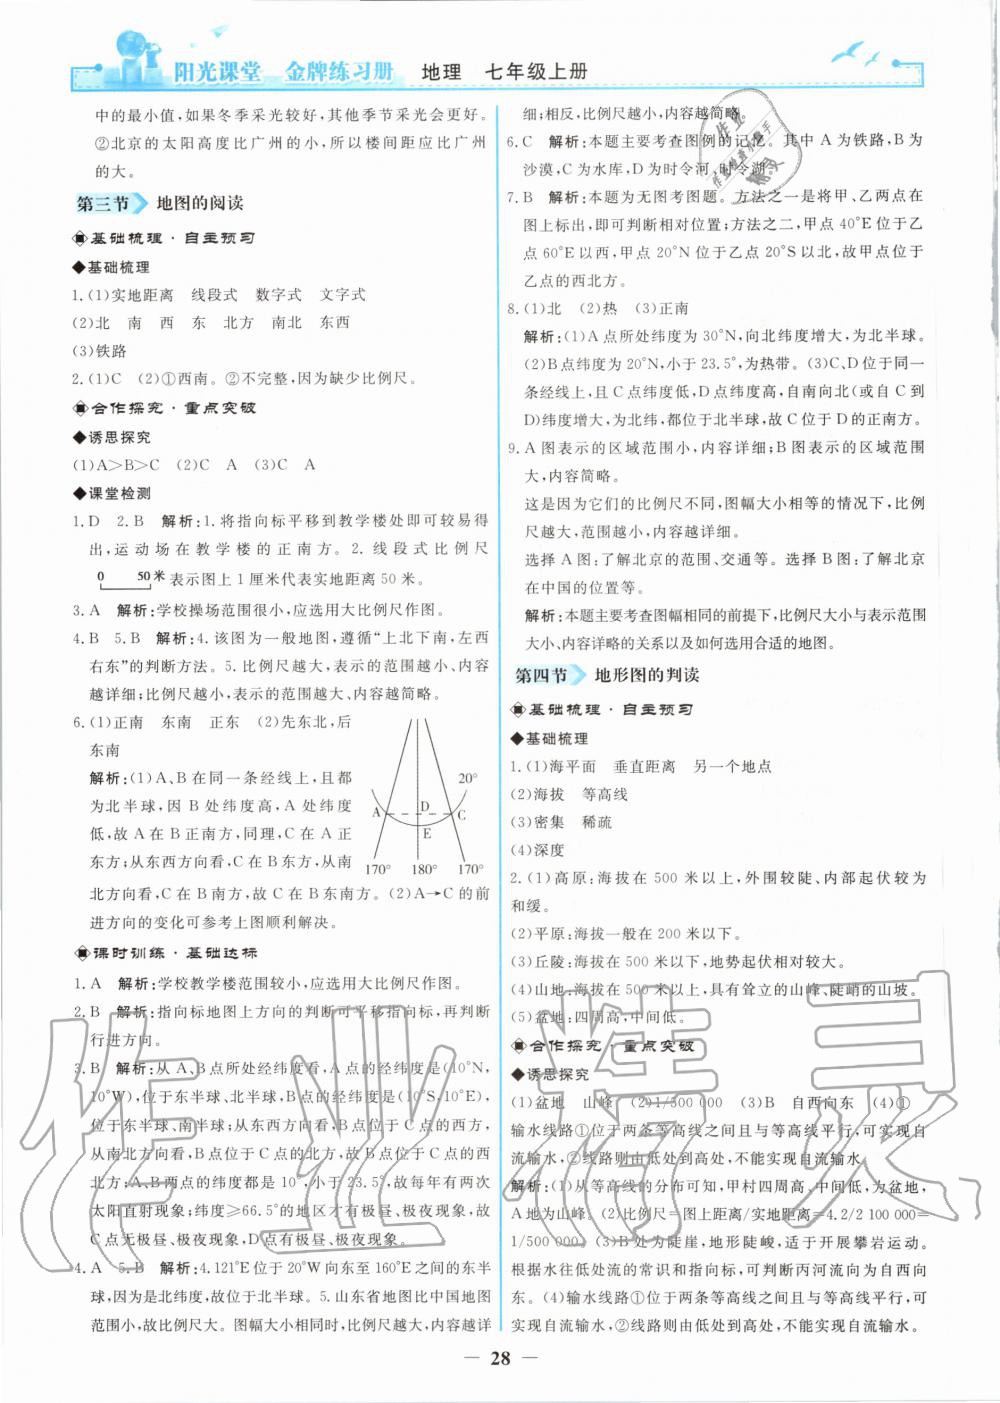 阳光课堂 金牌练习册 地理 七年级上册
中的最小值,如果冬季采光较好,其他季节采光会更好。
②北京的太阳高度比广州的小,所以楼间距应比广州
的大。
第三节 地图的阅读
基础梳理·自主预习
◆基础梳理
1.(1)实地距离 线段式 数字式 文字式
(2)北 南 西 东 北方 南北 东西
(3)铁路
2.(1)C (2)①西南。②不完整,因为缺少比例尺。
合作探究·重点突破
◆诱思探究
(1)A>B>C (2)C A (3)C A
◆课堂检测
1.D 2.B 解析:1.将指向标平移到教学楼处即可较易得
出,运动场在教学楼的正南方。2.线段式比例尺
0 50米 表示图上1厘米代表实地距离50米。
3.A 解析:学校操场范围很小,应选用大比例尺作图。
4.B 5.B 解析:4.该图为一般地图,遵循“上北下南,左西
右东”的判断方法。5.比例尺越大,表示的范围越小,内容
越详细;比例尺越小,表示的范围越大,内容越简略。
6.(1)正南 东南 正东 (2)先东北,后
东南
解析:(1)A、B在同一条经线上,且都
为北半球,因B处纬度高,A处纬度
低,故A在B正南方,同理,C在A正
东方;从东西方向看,C在B东方,从南
北方向看,C在B南方,故C在B东南方。(2)A→C的前
进方向的变化可参考上图顺利解决。
20°
A D C
E
170° 180° 170°
课时训练·基础达标
1.A 解析:学校教学楼范围较小,应选用大比例尺作图。
2.B 解析:指向标地图上方向的判断可平移指向标,再判断
行进方向。
3.B 解析:从A、B点所处经纬度看,A点的经纬度是(10°N,
10°W),位于东半球、北半球,B点的经纬度是(10°S,10°E),
位于东半球、南半球;从东西方向看,B点位于A点的东方,
从南北方向看,A点位于C点的北方,故A点位于C点的西
北方;A、B两点的纬度都是10°,小于23.5°,故每年有两次
太阳直射现象;纬度≥66.5°的地区才有极昼、极夜现象,故
C点无极昼、极夜现象,D点有极昼、极夜现象。
4.A 5.B 解析:4.121°E位于20°W向东至160°E之间的东半
球,因为是北纬度,故位于北半球。5.山东省地图比中国地图
范围小,故比例尺大。图幅大小相同时,比例尺越大,内容越详
细;相反,比例尺越小,内容越简略。
6.C 解析:本题主要考查图例的记忆。其中A为铁路,B为
沙漠,C为水库,D为时令河、时令湖。
7.B 解析:本题为无图考图题。方法之一是将甲、乙两点在
图上标出,即可判断相对位置;方法之二,甲点40°E位于乙
点60°E以西,甲点20°N位于乙点20°S以北,故甲点位于
乙点的西北方。
8.(1)北 (2)热 (3)正南
解析:(1)A点所处纬度为30°N,向北纬度增大,为北半球。
(2)B点纬度为20°N,小于23.5°,为热带。(3)C、D位于同一
条经线上,且C点纬度低,D点纬度高,自南向北(或自C到
D)纬度增大,为北纬,都位于北半球,故C位于D的正南方。
9.A图表示的区域范围小,内容详细;B图表示的区域范围
大,内容简略。
这是因为它们的比例尺不同,图幅大小相等的情况下,比例
尺越大,范围越小,内容越详细。
选择A图:了解北京的范围、交通等。选择B图:了解北京
在中国的位置等。
解析:本题主要考查图幅相同的前提下,比例尺大小与表示范围
大小、内容详略的关系以及如何选用合适的地图。
第四节 地形图的判读
基础梳理·自主预习
◆基础梳理
1.(1)海平面 垂直距离 另一个地点
(2)海拔 等高线
(3)密集 稀疏
(4)深度
2.(1)高原:海拔在500米以上,外围较陡、内部起伏较为
和缓。
(2)平原:海拔一般在200米以下。
(3)丘陵:海拔在500米以下,地势起伏相对较大。
(4)山地:海拔在500米以上,具有耸立的山峰、陡峭的山坡。
(5)盆地:四周高,中间低。
合作探究·重点突破
◆诱思探究
(1)盆地 山峰 (2)1/500 000 (3)B 自西向东 (4)①
输水线路①位于两条等高线之间且与等高线平行,可实现自
流输水,②线路则由低处到高处,不能实现自流输水。
解析:(1)从等高线的分布可知,甲村四周高,中间低,为盆地,
A地为山峰。(2)比例尺=图上距离/实地距离=4.2/2 100 000=
1/500 000。(3)B处为陡崖,地形陡峻,适于开展攀岩运动。
根据水往低处流的常识和指向标,可判断丙河流向为自西向
东。(4)输水线路①位于两条等高线之间且与等高线平行,可
实现自流输水,②线路则由低处到高处,不能实现自流输水。
— 28 —
作业精灵